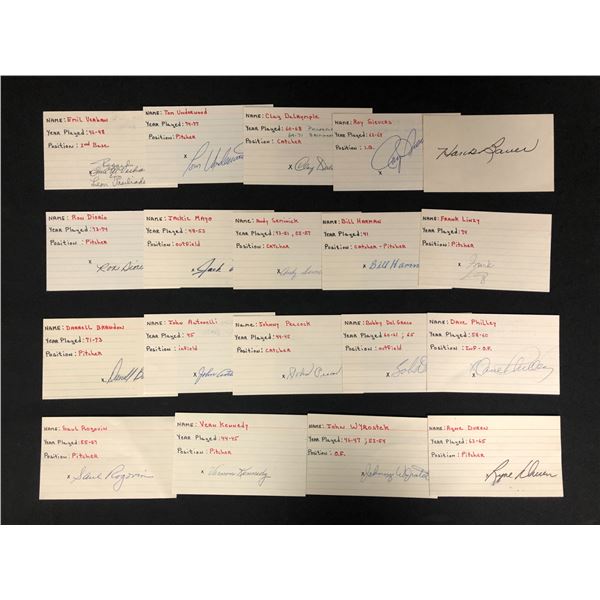 NAME: Emil Verban
Year Played: 46-48
Position: 2nd Base
Regards
NAME: Tom Underwood
Year Played: 74-77
Position: Pitcher
x Tom Underwood
NAME: Clay Dalrymple
Year Played: 60-68
69-71
Position: Catcher
x Clay Dal
NAME: Roy Sievers
Year Played: 62-64
Position: 1.B.
x Roy Sievers
Hank Sauer
NAME: Ron Diorio
Year Played: 73-74
Position: Pitcher
x Ron Diori
NAME: Jackie Mayo
Year Played: 48-53
Position: outfield
x Jack
NAME: Andy Seminick
Year Played: 43-51, 55-57
Position: Catcher
x Andy Semi
NAME: Bill Harman
Year Played: 41
Position: Catcher - Pitcher
x Bill Harm
NAME: Frank Linzy
Year Played: 74
Position: Pitcher
x Frank
NAME: Darrell Brandon
Year Played: 71-73
Position: Pitcher
x Darrell B
NAME: John Antonelli
Year Played: 45
Position: infield
x John Anto
NAME: Johnny Peacock
Year Played: 44-45
Position: Catcher
x John Peaco
NAME: Bobby Del Greco
Year Played: 60-61, 65
Position: outfield
x Bob D
NAME: Dave Philley
Year Played: 58-60
Position: Inf-O.F.
x Dave Philley
NAME: Saul Rogovin
Year Played: 55-57
Position: Pitcher
x Saul Rogovin
NAME: Vern Kennedy
Year Played: 44-45
Position: Pitcher
x Vernon Kennedy
NAME: John Wyrostek
Year Played: 46-47, 52-54
Position: O.F.
x Johnny Wyrostek
NAME: Ryne Duren
Year Played: 63-65
Position: Pitcher
x Ryne Duren